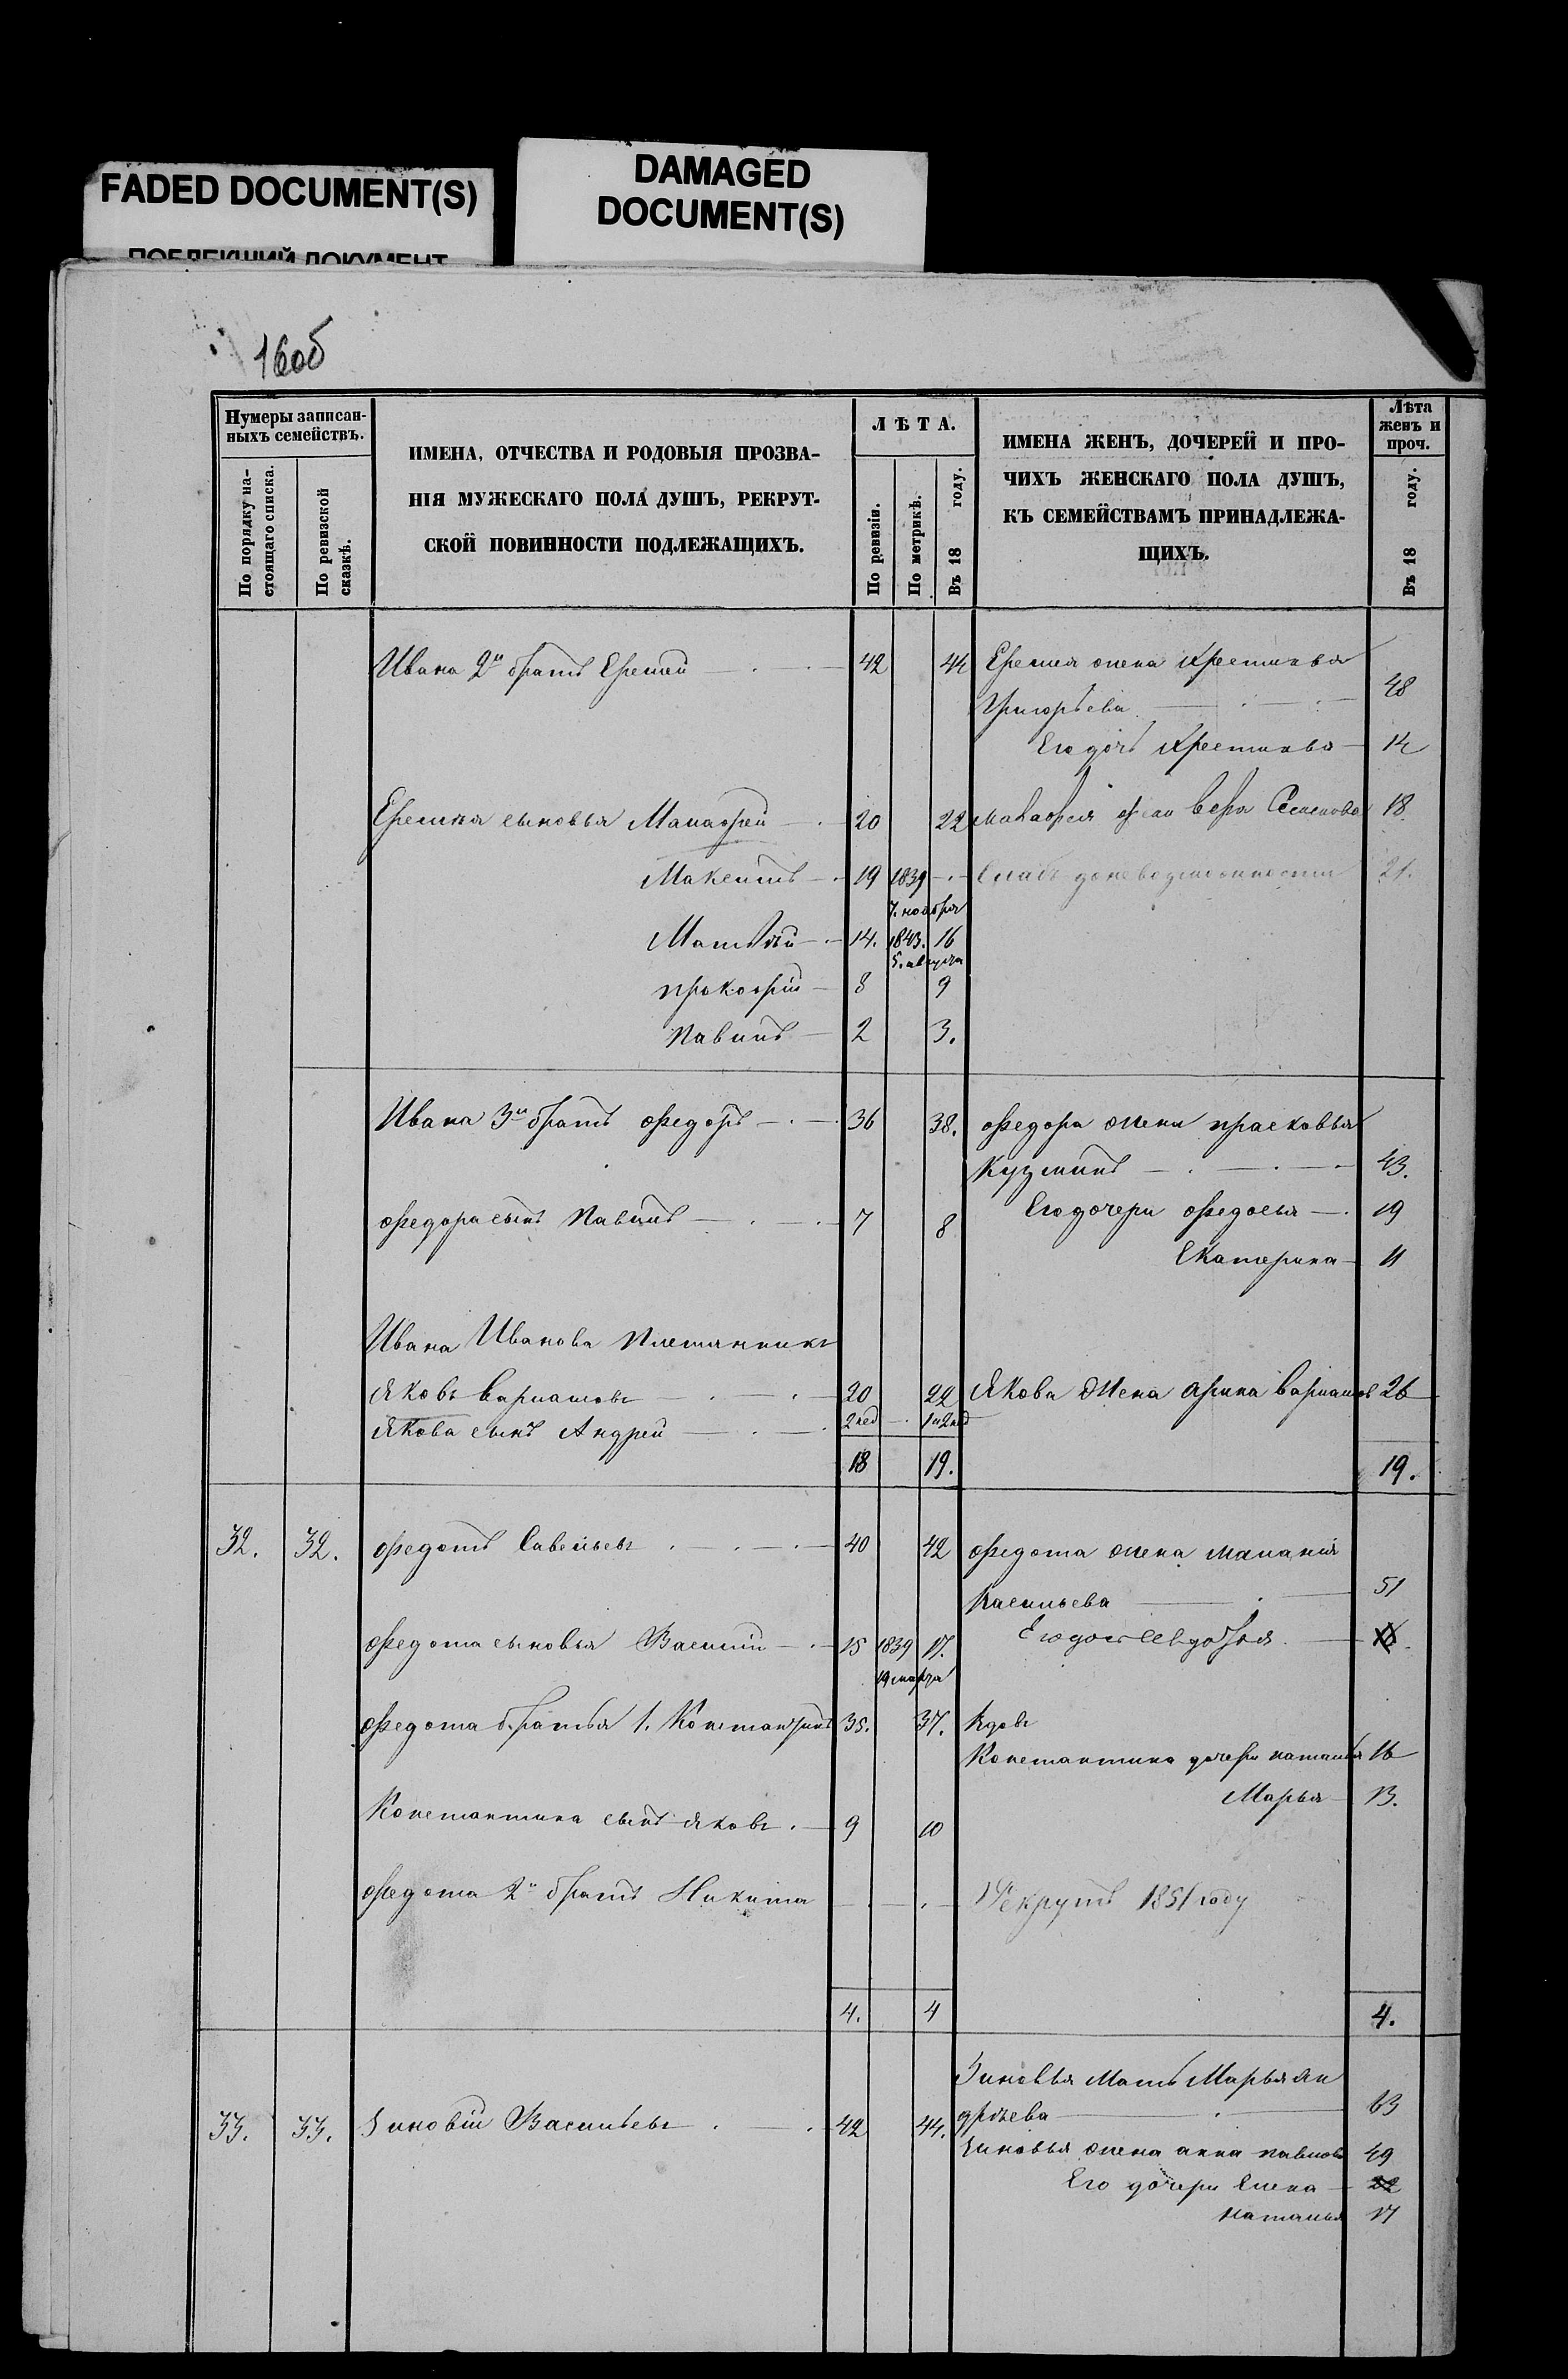 FADED DOCUMENT(S)
DAMAGED
DOCUMENT(S)
ПОБЛЕКШИЙ ДОКУМЕНТ
16об
Нумеры записан-
ныхъ семействъ.
По порядку на-
стоящаго списка.
По ревизской
сказкѣ.
ИМЕНА, ОТЧЕСТВА И РОДОВЫЯ ПРОЗВА-
НІЯ МУЖЕСКАГО ПОЛА ДУШЪ, РЕКРУТ-
СКОЙ ПОВИННОСТИ ПОДЛЕЖАЩИХЪ.
ЛѢТА.
По ревизіи.
По метрикѣ.
Въ 18 году.
ИМЕНА ЖЕНЪ, ДОЧЕРЕЙ И ПРО-
ЧИХЪ ЖЕНСКАГО ПОЛА ДУШЪ,
КЪ СЕМЕЙСТВАМЪ ПРИНАДЛЕЖА-
ЩИХЪ.
Лѣта
женъ и
проч.
Въ 18 году.
Ивана 2й братъ Еремей 42 44 Еремея жена Крестинья
Григорьева 48
Его дочь Крестинья 14
Еремея сыновья Малафей 20 22 Малафея жена Вера Семенова 18
Максимъ 19 1839 Слабъ 21.
7. ноября
Матвѣй 14. 1843. 16
5. августа
прокофій 8 9
Павилъ 2 3.
Ивана 3й братъ Федоръ 36 38. Федора жена прасковья
Кузмина 43.
Федора сынъ Павилъ 7 8 Его дочери Федосья 19
Екатерина 11
Ивана Иванова Племянникъ
Яковъ Варламовъ 20 22 Якова жена Арина 26
Якова сынъ Андрей 2 нед 1 и 2 нед
18 19. 19.
32. 32. Федотъ Савельевъ 40 42 Федота жена маланья
Васильева 51
Федота сыновья Василій 15 1839 17. Его дочь Евдофья
19 марта
Федота братья 1. Константинъ 35. 37. Вдовъ
Константина дочери наталья 16
Марья 13.
Константина сынъ Яковъ 9 10
Федота 2й братъ Никита Рекрутъ 1851 году
4. 4 4.
Зиновья Мать Марья Ан
33. 33. Зиновій Васильевъ 42 44. дрѣева 63
Зиновья жена анна павлова 49
Его дочери Елена 22
наталья 17